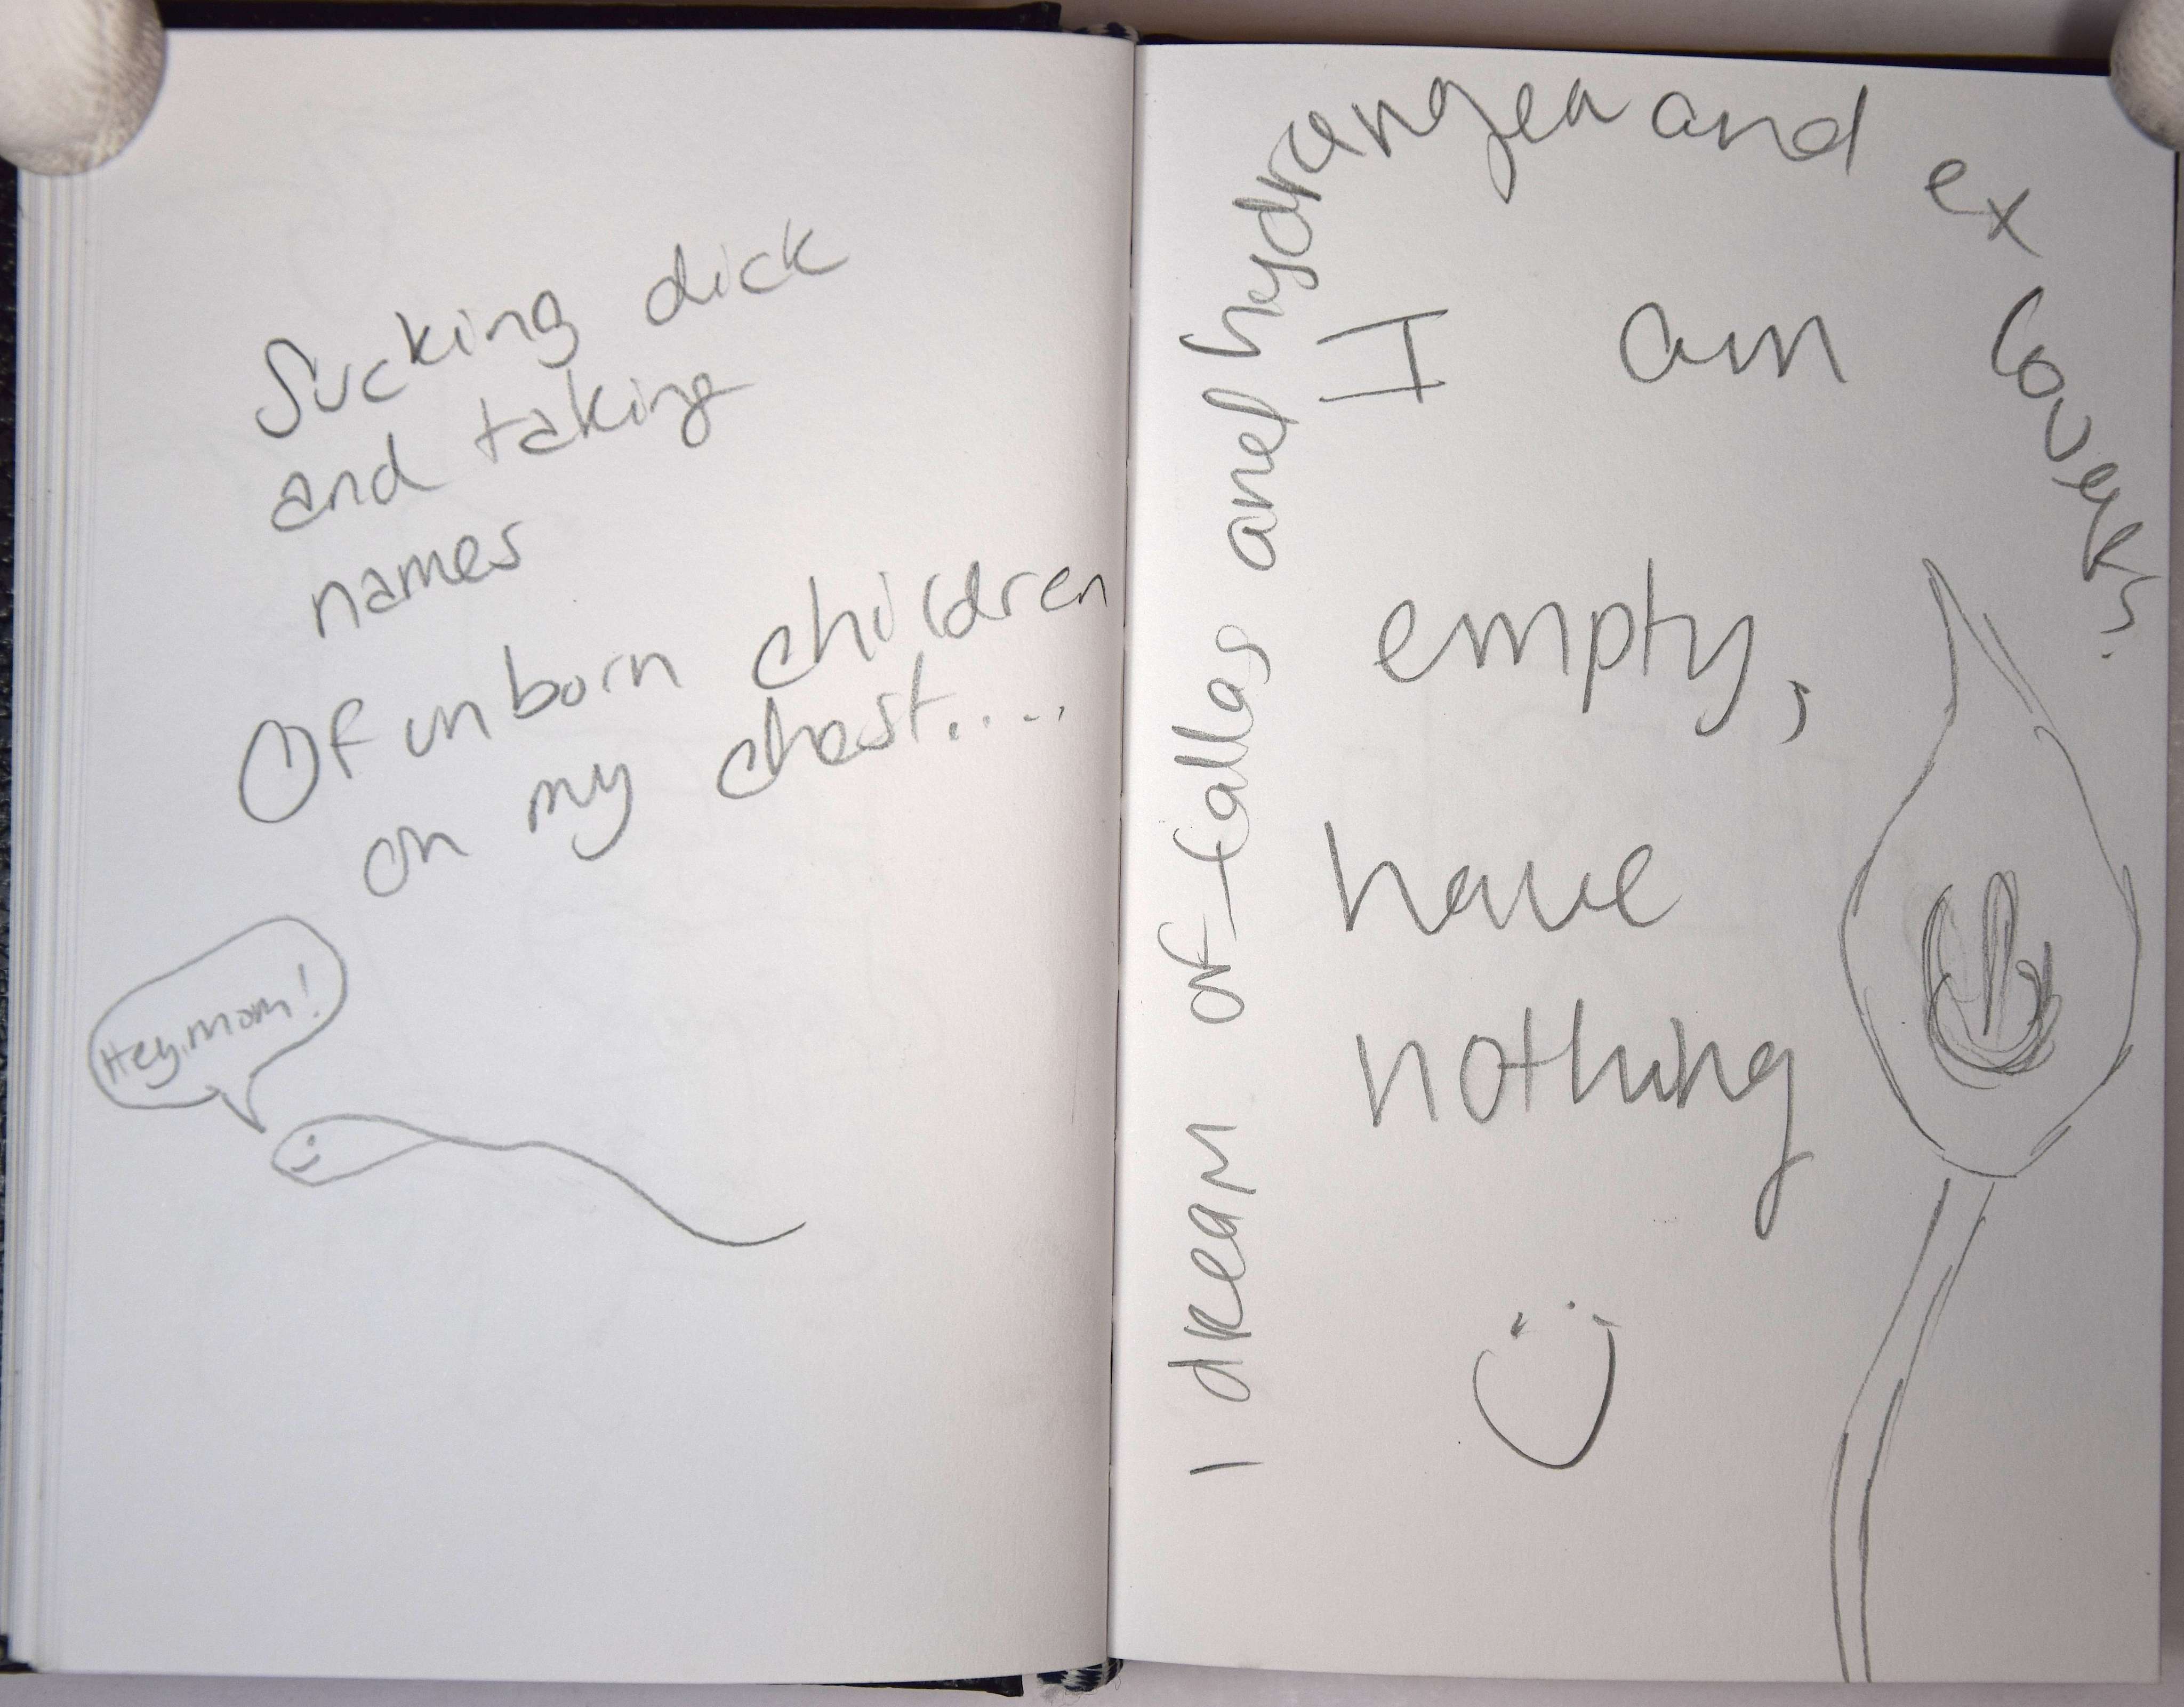 Sucking dick
and taking
names
Of unborn children
on my chest....
Hey, mom!
I dream of fallas and hydrangea and ex lovers.
I am
empty,
have
nothing